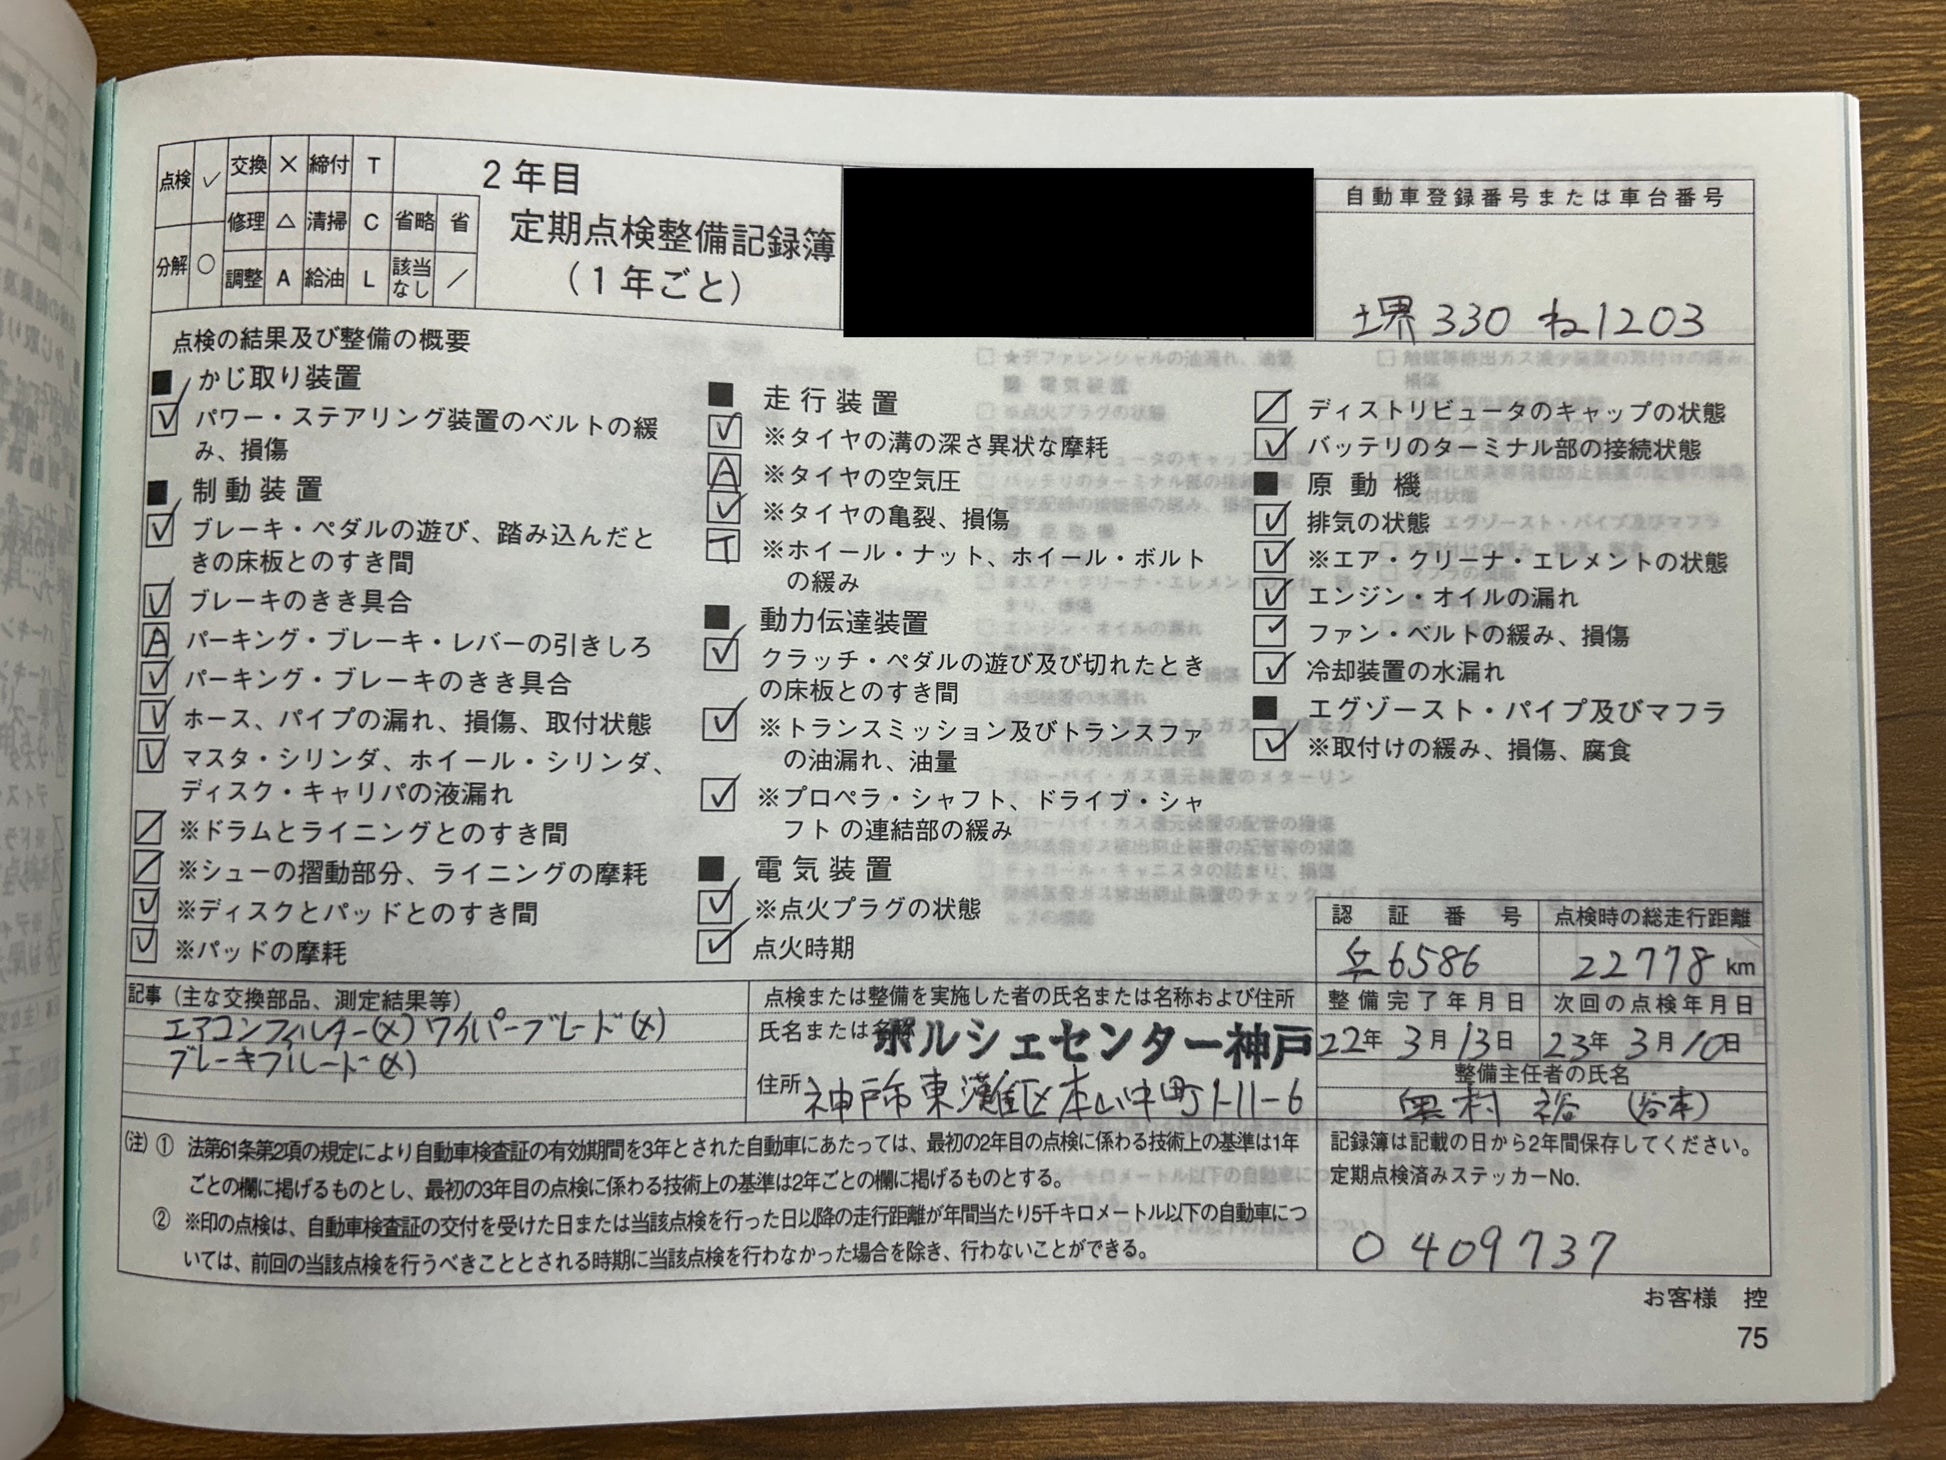 点検 ✓ 交換 × 締付 T
修理 △ 清掃 C 省略 省
分解 ○ 調整 A 給油 L 該当なし ／
2年目
定期点検整備記録簿
（1年ごと）
自動車登録番号または車台番号
堺330 ね1203
点検の結果及び整備の概要
■ かじ取り装置
✓ パワー・ステアリング装置のベルトの緩
み、損傷
■ 制動装置
✓ ブレーキ・ペダルの遊び、踏み込んだと
きの床板とのすき間
✓ ブレーキのきき具合
A パーキング・ブレーキ・レバーの引きしろ
✓ パーキング・ブレーキのきき具合
✓ ホース、パイプの漏れ、損傷、取付状態
✓ マスタ・シリンダ、ホイール・シリンダ、
ディスク・キャリパの液漏れ
／ ※ドラムとライニングとのすき間
／ ※シューの摺動部分、ライニングの摩耗
✓ ※ディスクとパッドとのすき間
✓ ※パッドの摩耗
■ 走行装置
✓ ※タイヤの溝の深さ異状な摩耗
A ※タイヤの空気圧
✓ ※タイヤの亀裂、損傷
T ※ホイール・ナット、ホイール・ボルト
の緩み
■ 動力伝達装置
✓ クラッチ・ペダルの遊び及び切れたとき
の床板とのすき間
✓ ※トランスミッション及びトランスファ
の油漏れ、油量
✓ ※プロペラ・シャフト、ドライブ・シャ
フト の連結部の緩み
■ 電気装置
✓ ※点火プラグの状態
✓ 点火時期
／ ディストリビュータのキャップの状態
✓ バッテリのターミナル部の接続状態
■ 原動機
✓ 排気の状態
✓ ※エア・クリーナ・エレメントの状態
✓ エンジン・オイルの漏れ
✓ ファン・ベルトの緩み、損傷
✓ 冷却装置の水漏れ
■ エグゾースト・パイプ及びマフラ
✓ ※取付けの緩み、損傷、腐食
認証番号 点検時の総走行距離
兵6586 22778 km
記事（主な交換部品、測定結果等）
エアコンフィルター(×) ワイパーブレード(×)
ブレーキフルード(×)
点検または整備を実施した者の氏名または名称および住所
氏名または名称 ポルシェセンター神戸
住所 神戸市東灘区本山中町1-11-6
整備完了年月日 次回の点検年月日
22年 3月13日 23年 3月10日
整備主任者の氏名
奥村 裕 (谷本)
(注) ① 法第61条第2項の規定により自動車検査証の有効期間を3年とされた自動車にあたっては、最初の2年目の点検に係わる技術上の基準は1年
ごとの欄に掲げるものとし、最初の3年目の点検に係わる技術上の基準は2年ごとの欄に掲げるものとする。
② ※印の点検は、自動車検査証の交付を受けた日または当該点検を行った日以降の走行距離が年間当たり5千キロメートル以下の自動車につ
いては、前回の当該点検を行うべきこととされる時期に当該点検を行わなかった場合を除き、行わないことができる。
記録簿は記載の日から2年間保存してください。
定期点検済みステッカーNo.
0409737
お客様 控
75